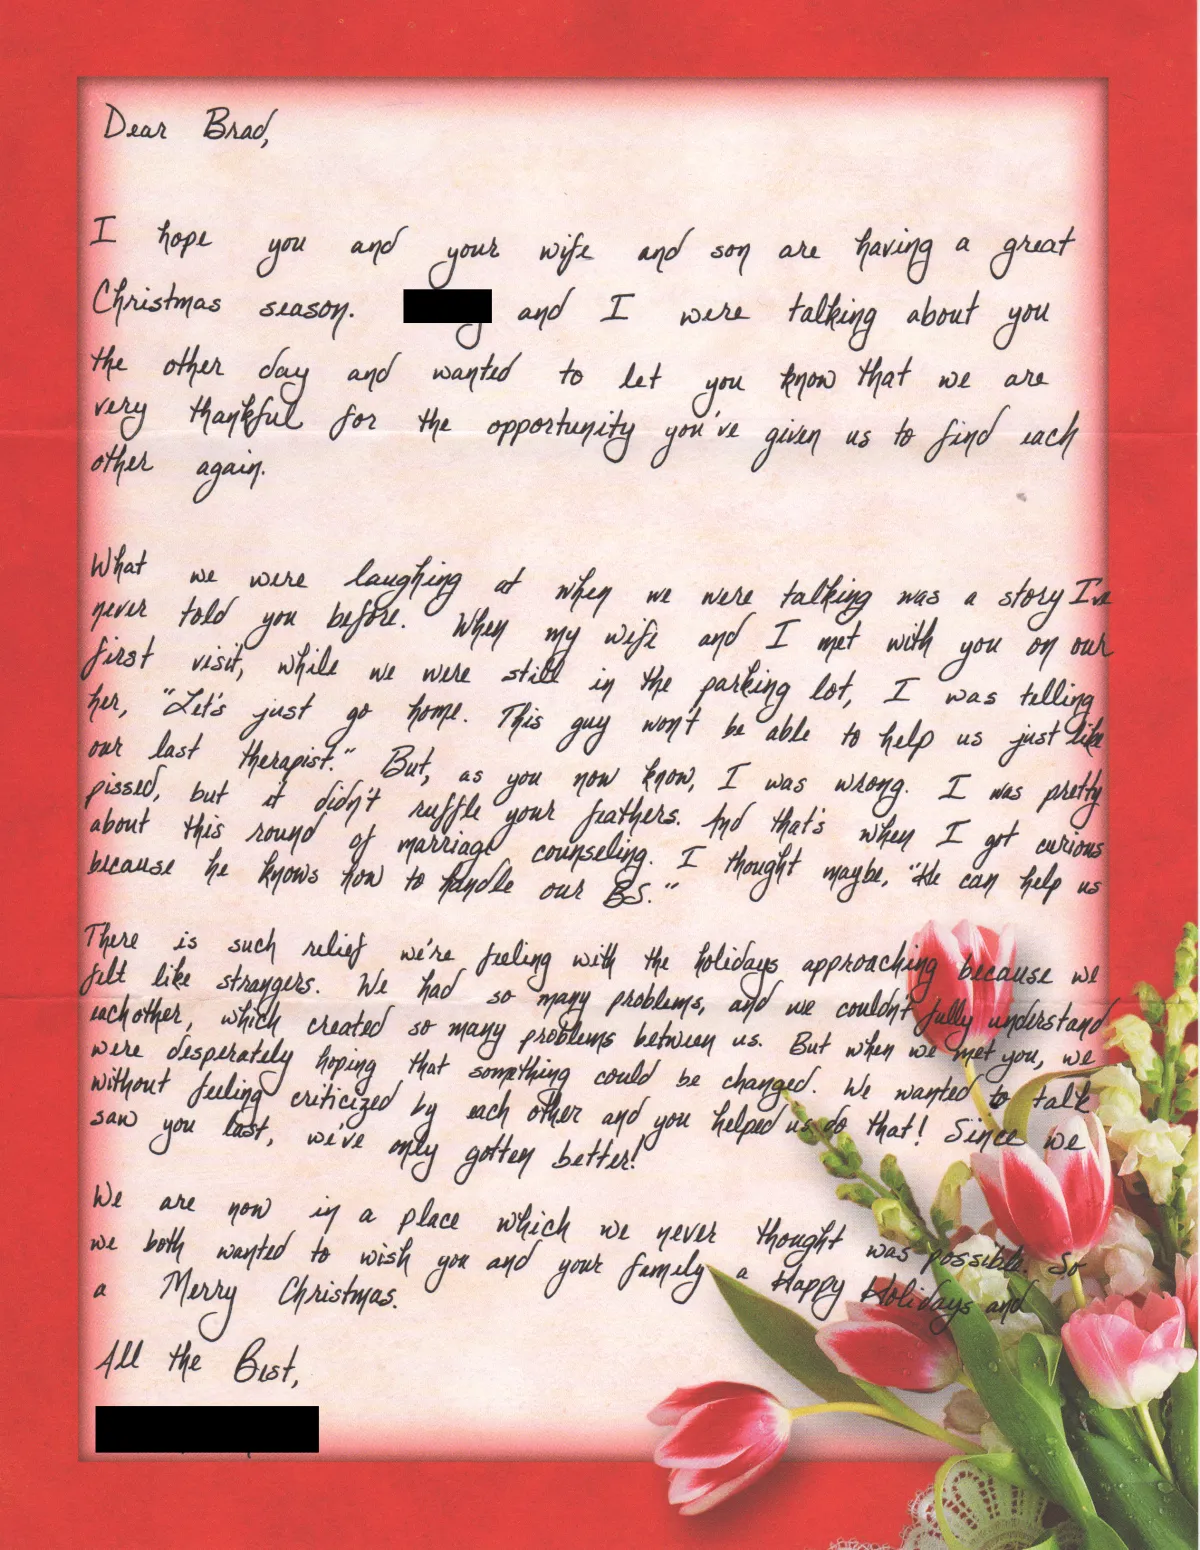 Dear Brad,
I hope you and your wife and son are having a great
Christmas season. and I were talking about you
the other day and wanted to let you know that we are
very thankful for the opportunity you've given us to find each
other again.
What we were laughing at when we were talking was a story I've
never told you before. When my wife and I met with you on our
first visit, while we were still in the parking lot, I was telling
her, "Let's just go home. This guy won't be able to help us just like
our last therapist." But, as you now know, I was wrong. I was pretty
pissed, but it didn't ruffle your feathers. And that's when I got curious
about this round of marriage counseling. I thought maybe, "He can help us
because he knows how to handle our BS."
There is such relief we're feeling with the holidays approaching because we
felt like strangers. We had so many problems, and we couldn't fully understand
eachother, which created so many problems between us. But when we met you, we
were desperately hoping that something could be changed. We wanted to talk
without feeling criticized by each other and you helped us do that! Since we
saw you last, we've only gotten better!
We are now in a place which we never thought was possible. So
we both wanted to wish you and your family a Happy Holidays and
a Merry Christmas.
All the Best,